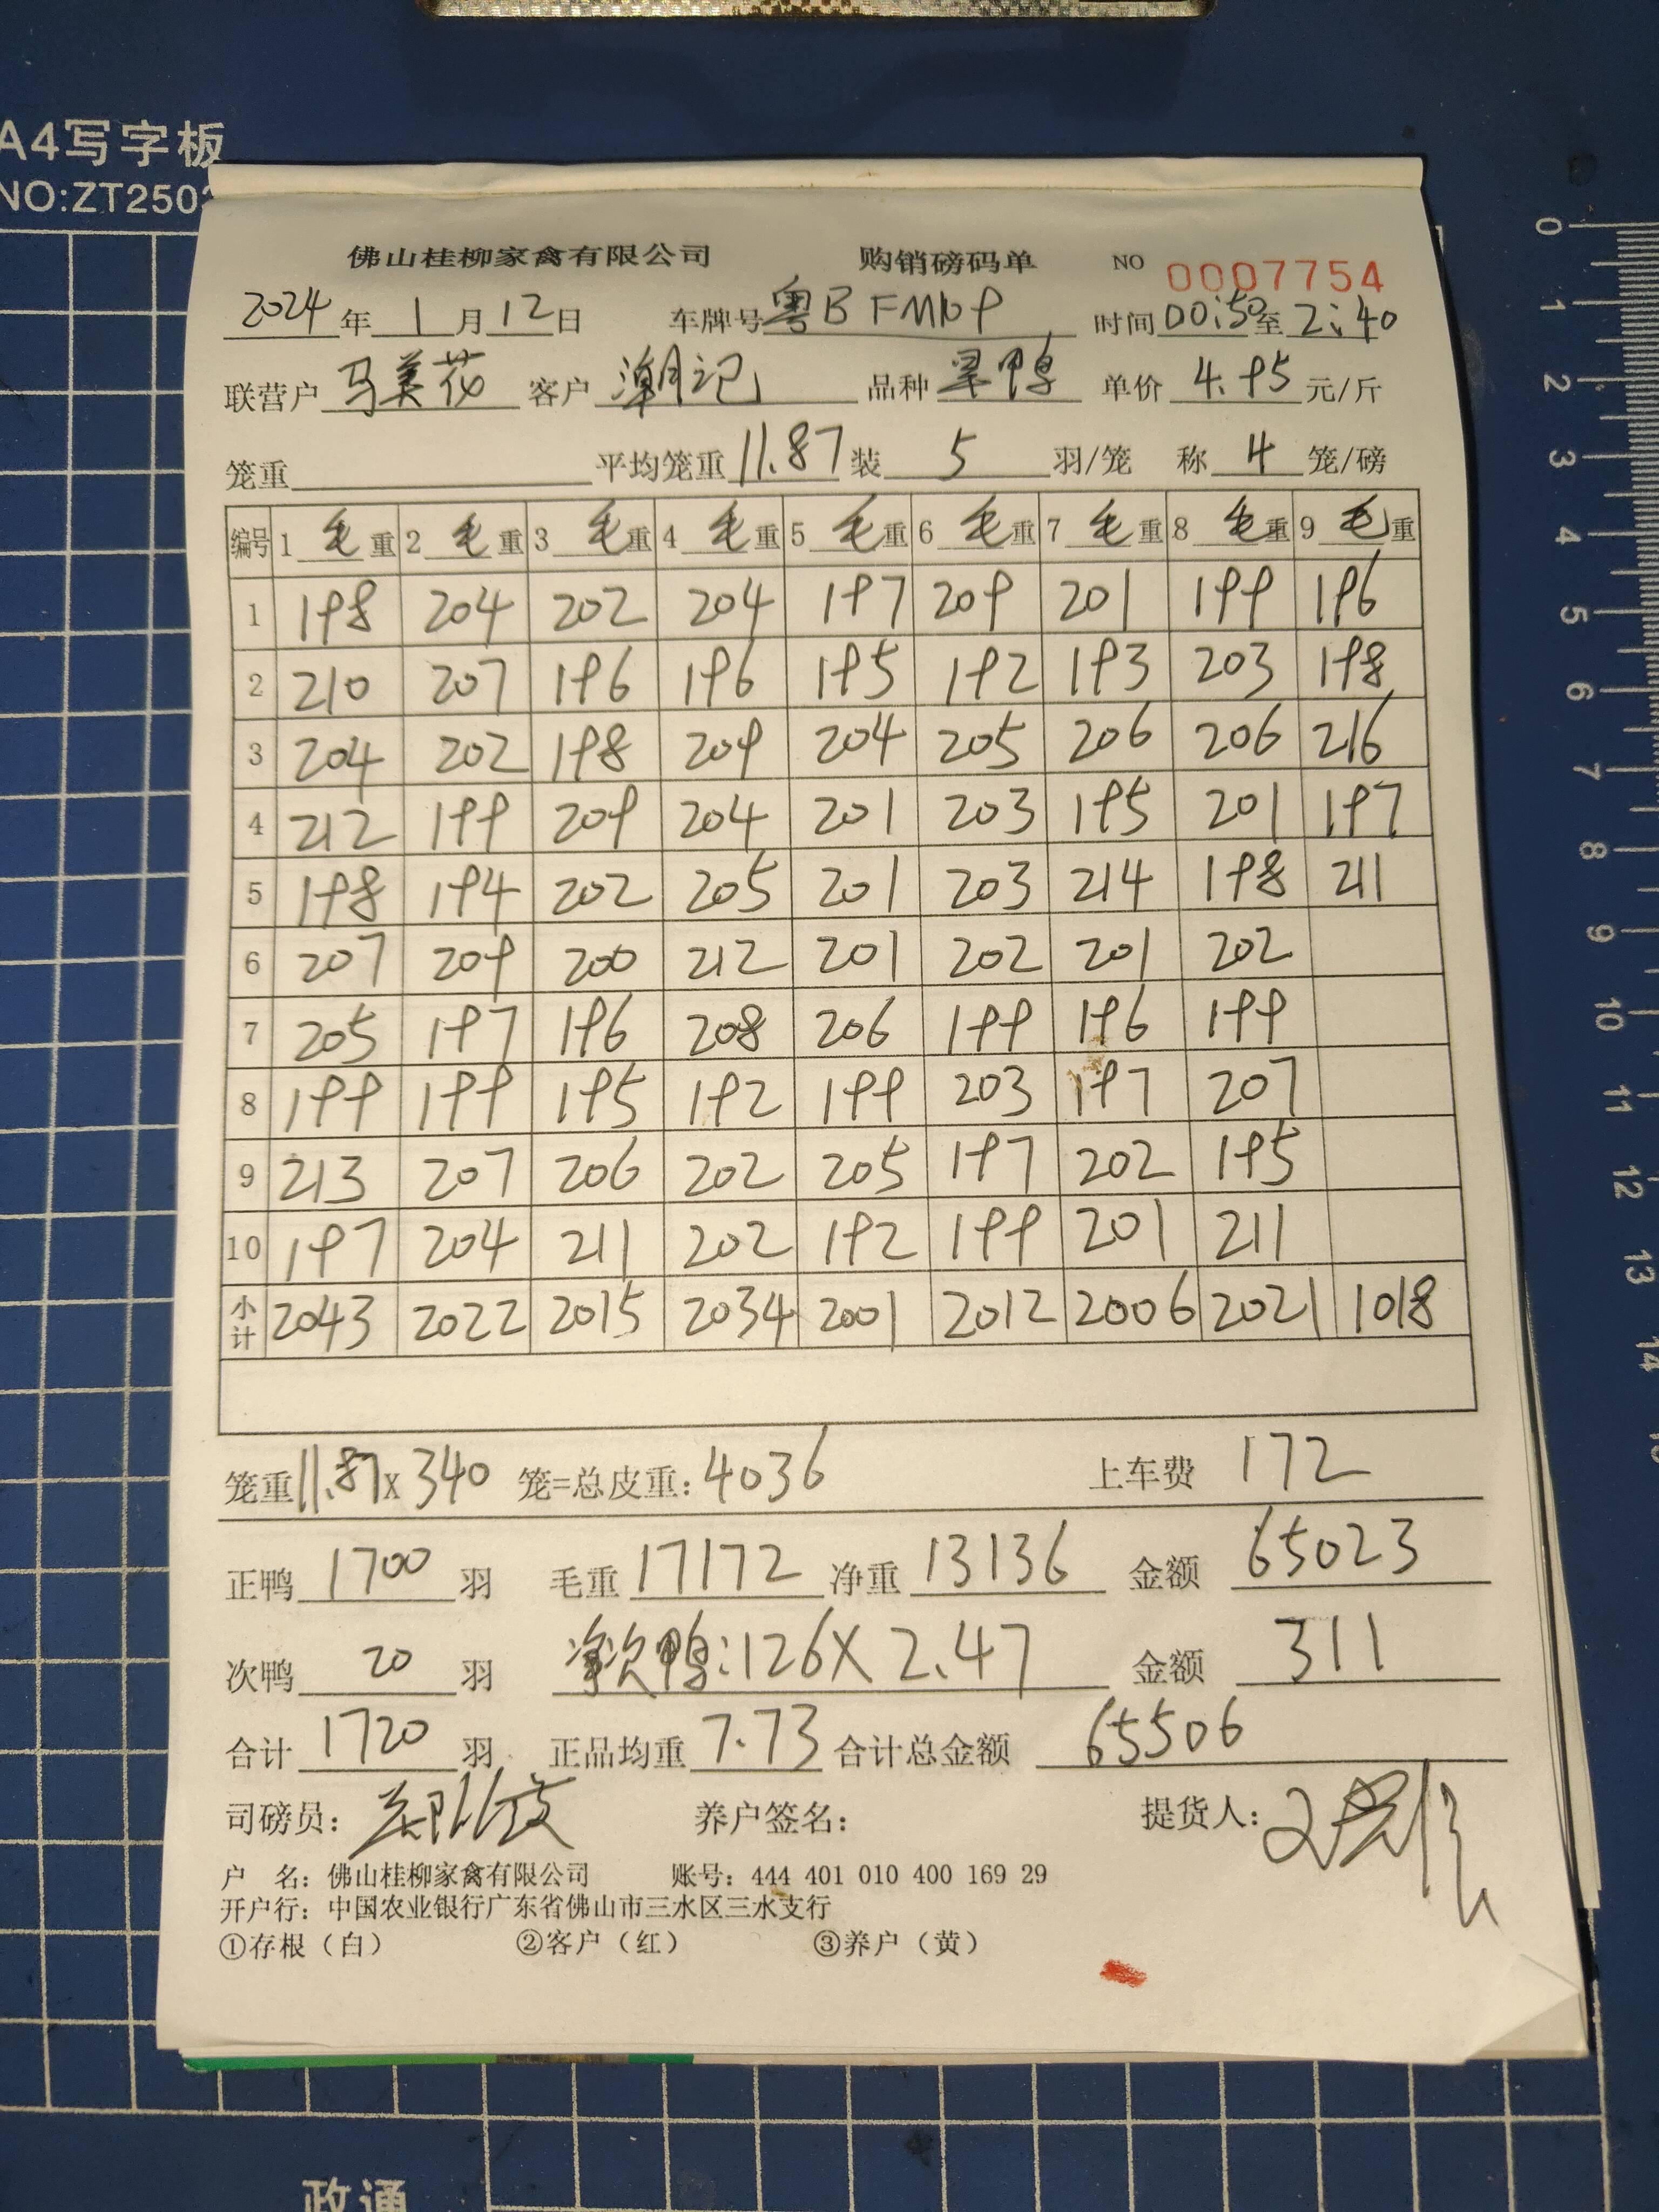 A4写字板
NO:ZT250
佛山桂柳家禽有限公司 购销磅码单 NO 0007754
2024年1月12日 车牌号粤B FM109 时间00:50至2:40
联营户 马美花 客户 潮记 品种 旱鸭 单价 4.95 元/斤
笼重 平均笼重 11.87 装 5 羽/笼 称 4 笼/磅
编号 1 毛重 2 毛重 3 毛重 4 毛重 5 毛重 6 毛重 7 毛重 8 毛重 9 毛重
1 198 204 202 204 197 209 201 199 196
2 210 207 196 196 195 192 193 203 198
3 204 202 198 209 204 205 206 206 216
4 212 199 209 204 201 203 195 201 197
5 198 194 202 205 201 203 214 198 211
6 207 209 200 212 201 202 201 202
7 205 197 196 208 206 199 196 199
8 199 199 195 192 199 203 197 207
9 213 207 206 202 205 197 202 195
10 197 204 211 202 192 199 201 211
小计 2043 2022 2015 2034 2001 2012 2006 2021 1018
笼重11.87x340 笼=总皮重:4036 上车费 172
正鸭 1700 羽 毛重 17172 净重 13136 金额 65023
次鸭 20 羽 净次鸭:126X2.47 金额 311
合计 1720 羽 正品均重 7.73 合计总金额 65506
司磅员: 养户签名: 提货人:
户 名: 佛山桂柳家禽有限公司 账号: 444 401 010 400 169 29
开户行: 中国农业银行广东省佛山市三水区三水支行
①存根（白） ②客户（红） ③养户（黄）
0
1
2
3
4
5
6
7
8
9
10
11
12
13
14
政通